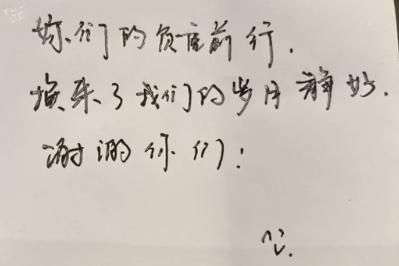 妳们的负重前行.
换来了我们的岁月静好.
谢谢你们!